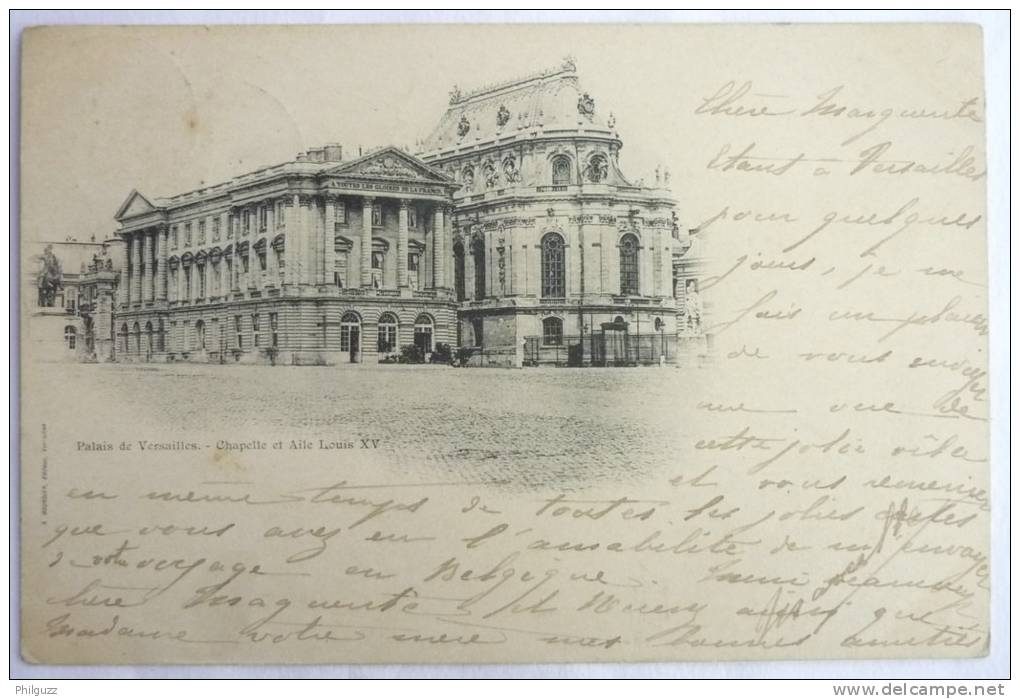 A TOUTES LES GLOIRES DE LA FRANCE
Chère Marguerite
Etant à Versailles
pour quelques
jours, je me
fais un plaisir
de vous envoyer
une vue de
cette jolie ville
et vous remercier
en même temps de toutes les jolies cartes
que vous avez eu l'amabilité de m'envoyer
de votre voyage en Belgique.
chère Marguerite, et ainsi que
Madame votre mère mes bonnes amitiés
Palais de Versailles. - Chapelle et Aile Louis XV
Philguzz
www.delcampe.net